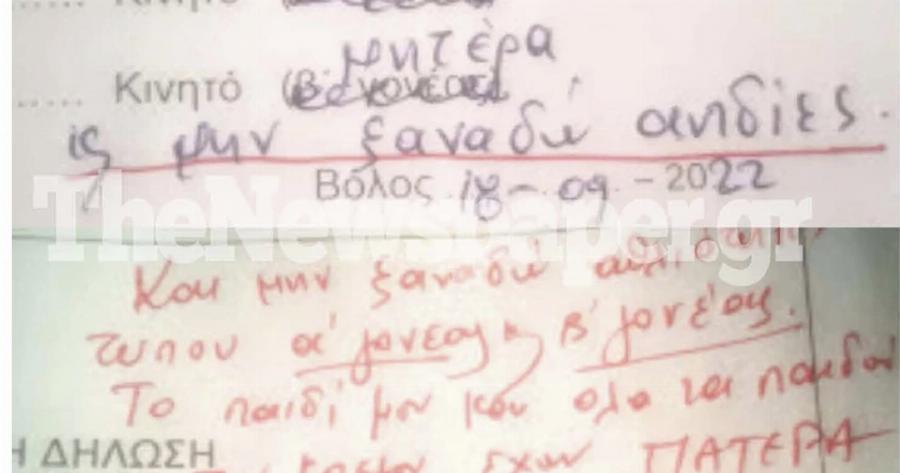 Κινητό
μητέρα
Κινητό (β' γονέας)
μην ξαναδώ αηδίες.
Βόλος 18-09-2022
TheNewspaper.gr
Και μην ξαναδώ
τυπου α' γονεας & β' γονέας.
Το παιδί μου και ολα τα παιδια
Η ΔΗΛΩΣΗ
εχουν ΠΑΤΕΡΑ